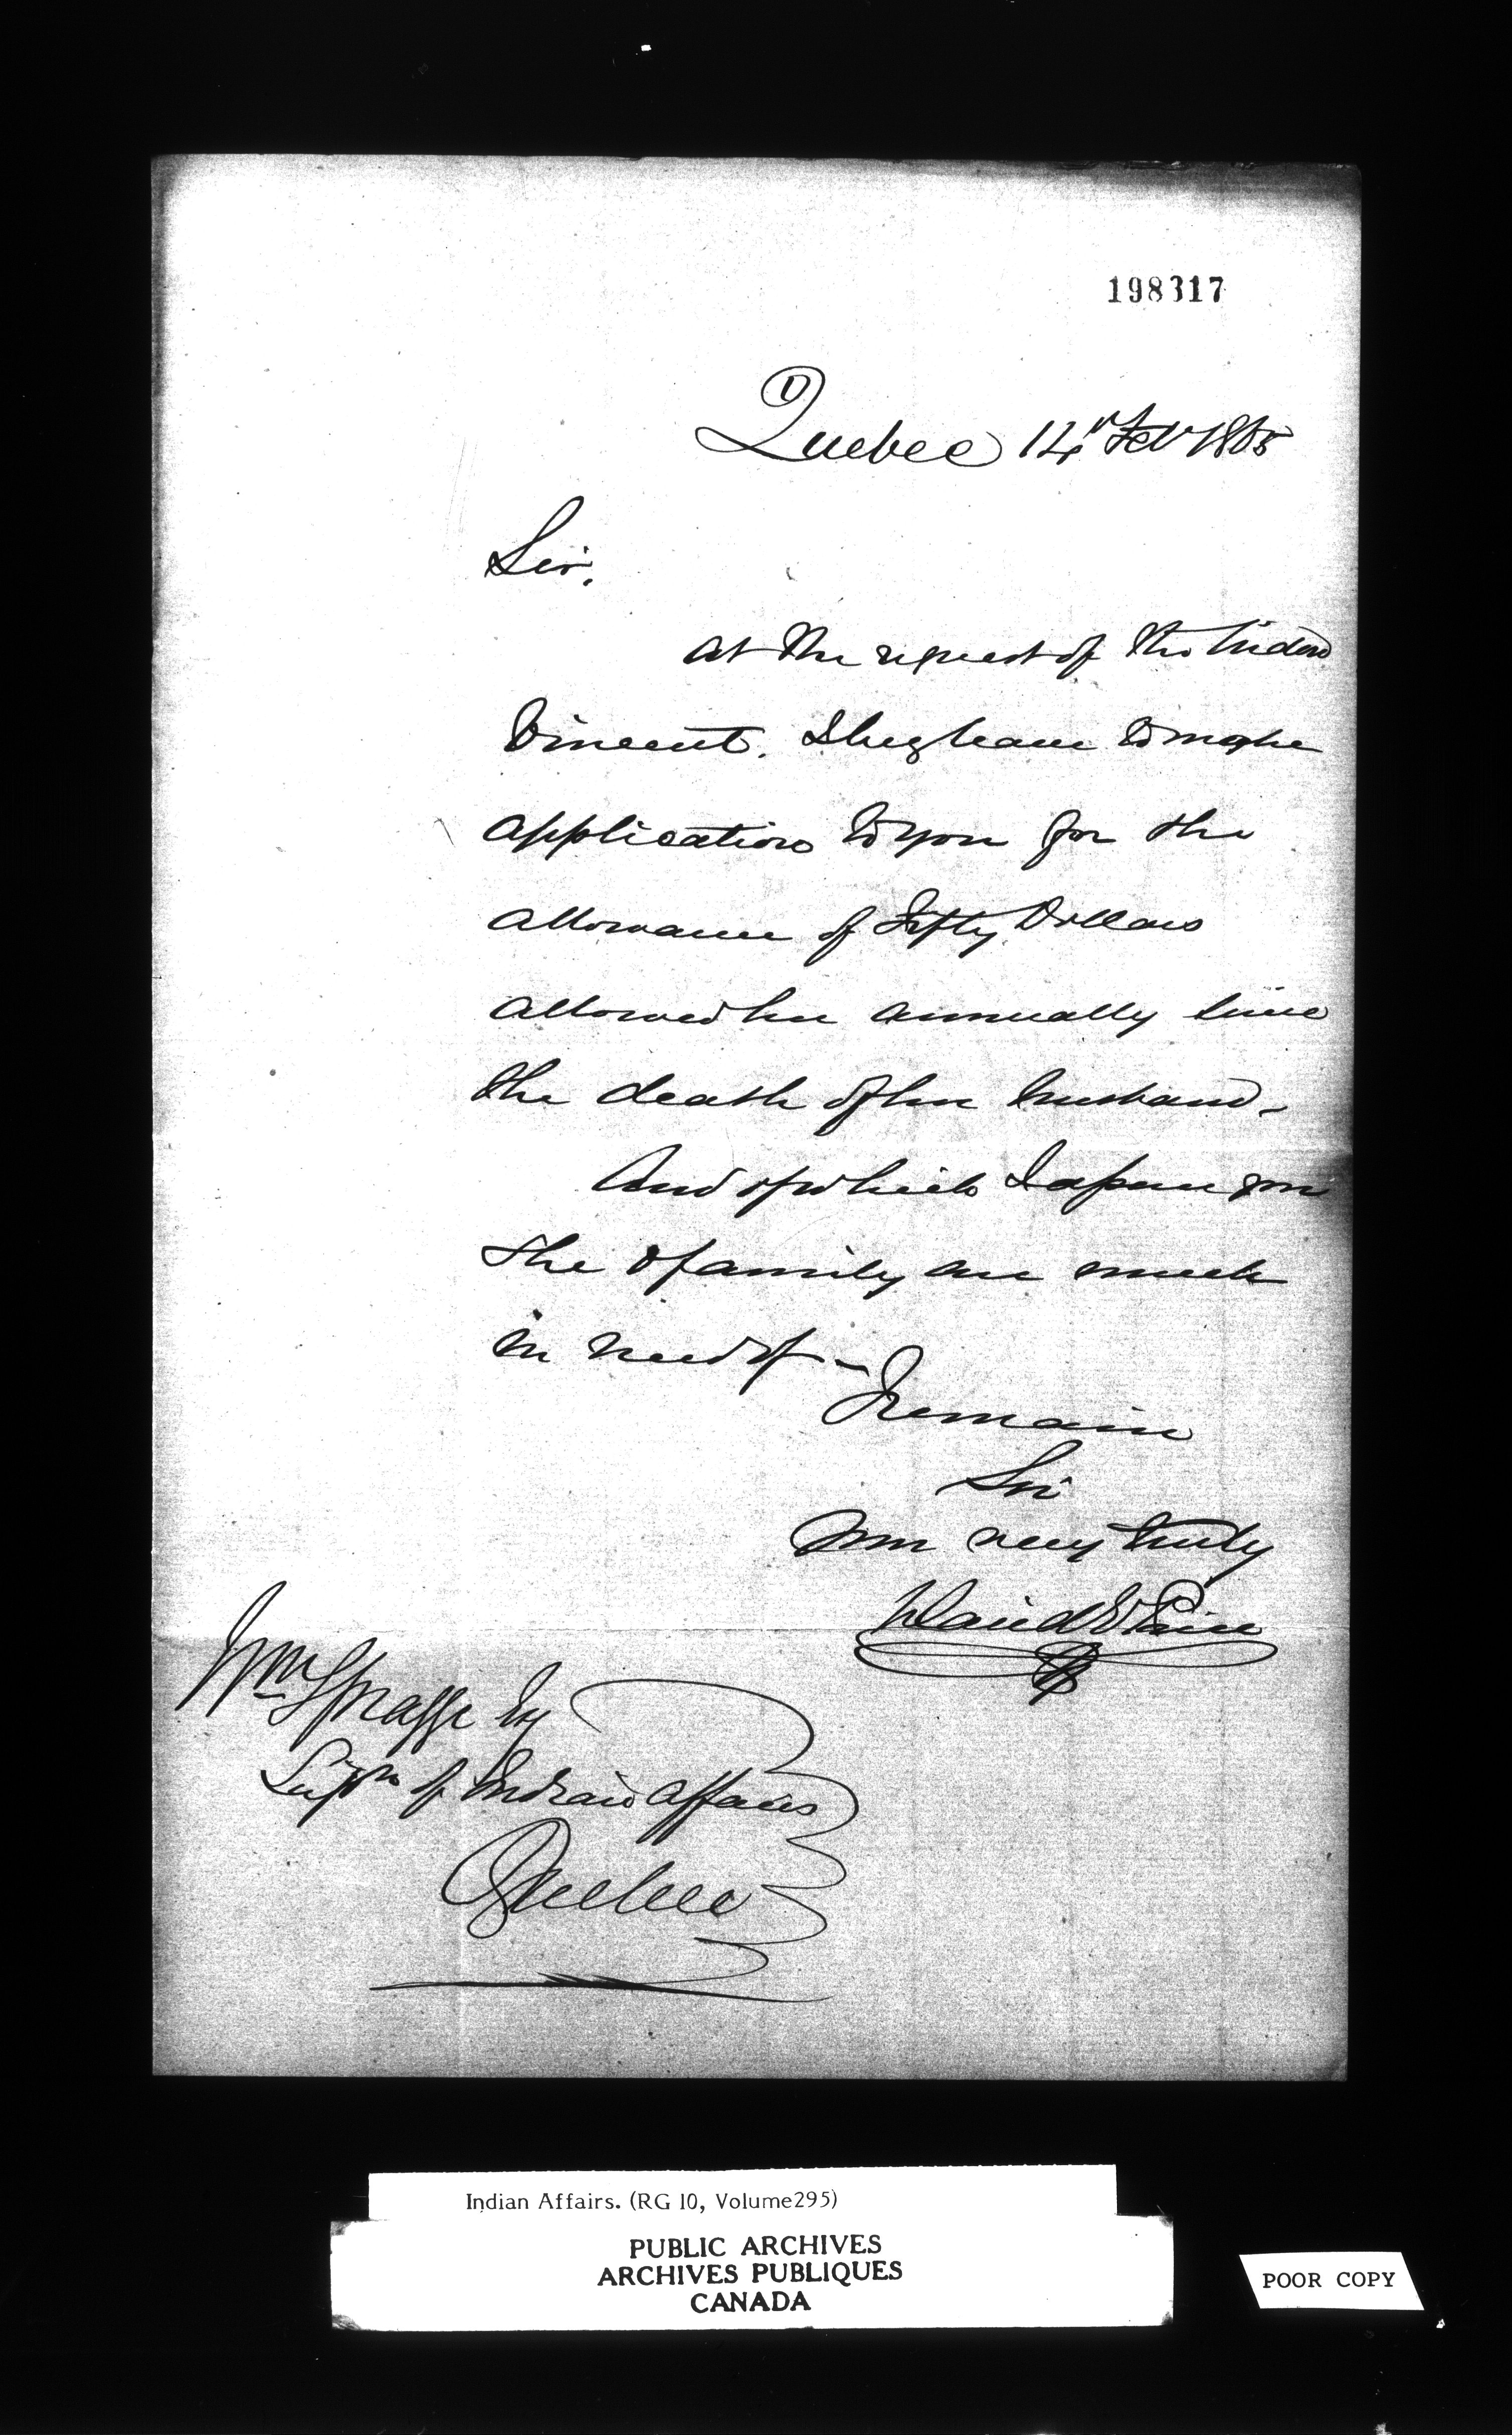 198317
Quebec 14th Feb 1865
Sir,
At the request of the Widow
Vincent. I beg leave to make
application to you for the
allowance of Fifty Dollars
allowed her annually since
the death of her husband.
And of which I assure you
she & family are much
in need of –
I remain
Sir
Your very truly
David
Wm Spragge Esq
Supn of Indian Affairs
Quebec
Indian Affairs. (RG 10, Volume295)
PUBLIC ARCHIVES
ARCHIVES PUBLIQUES
CANADA
POOR COPY